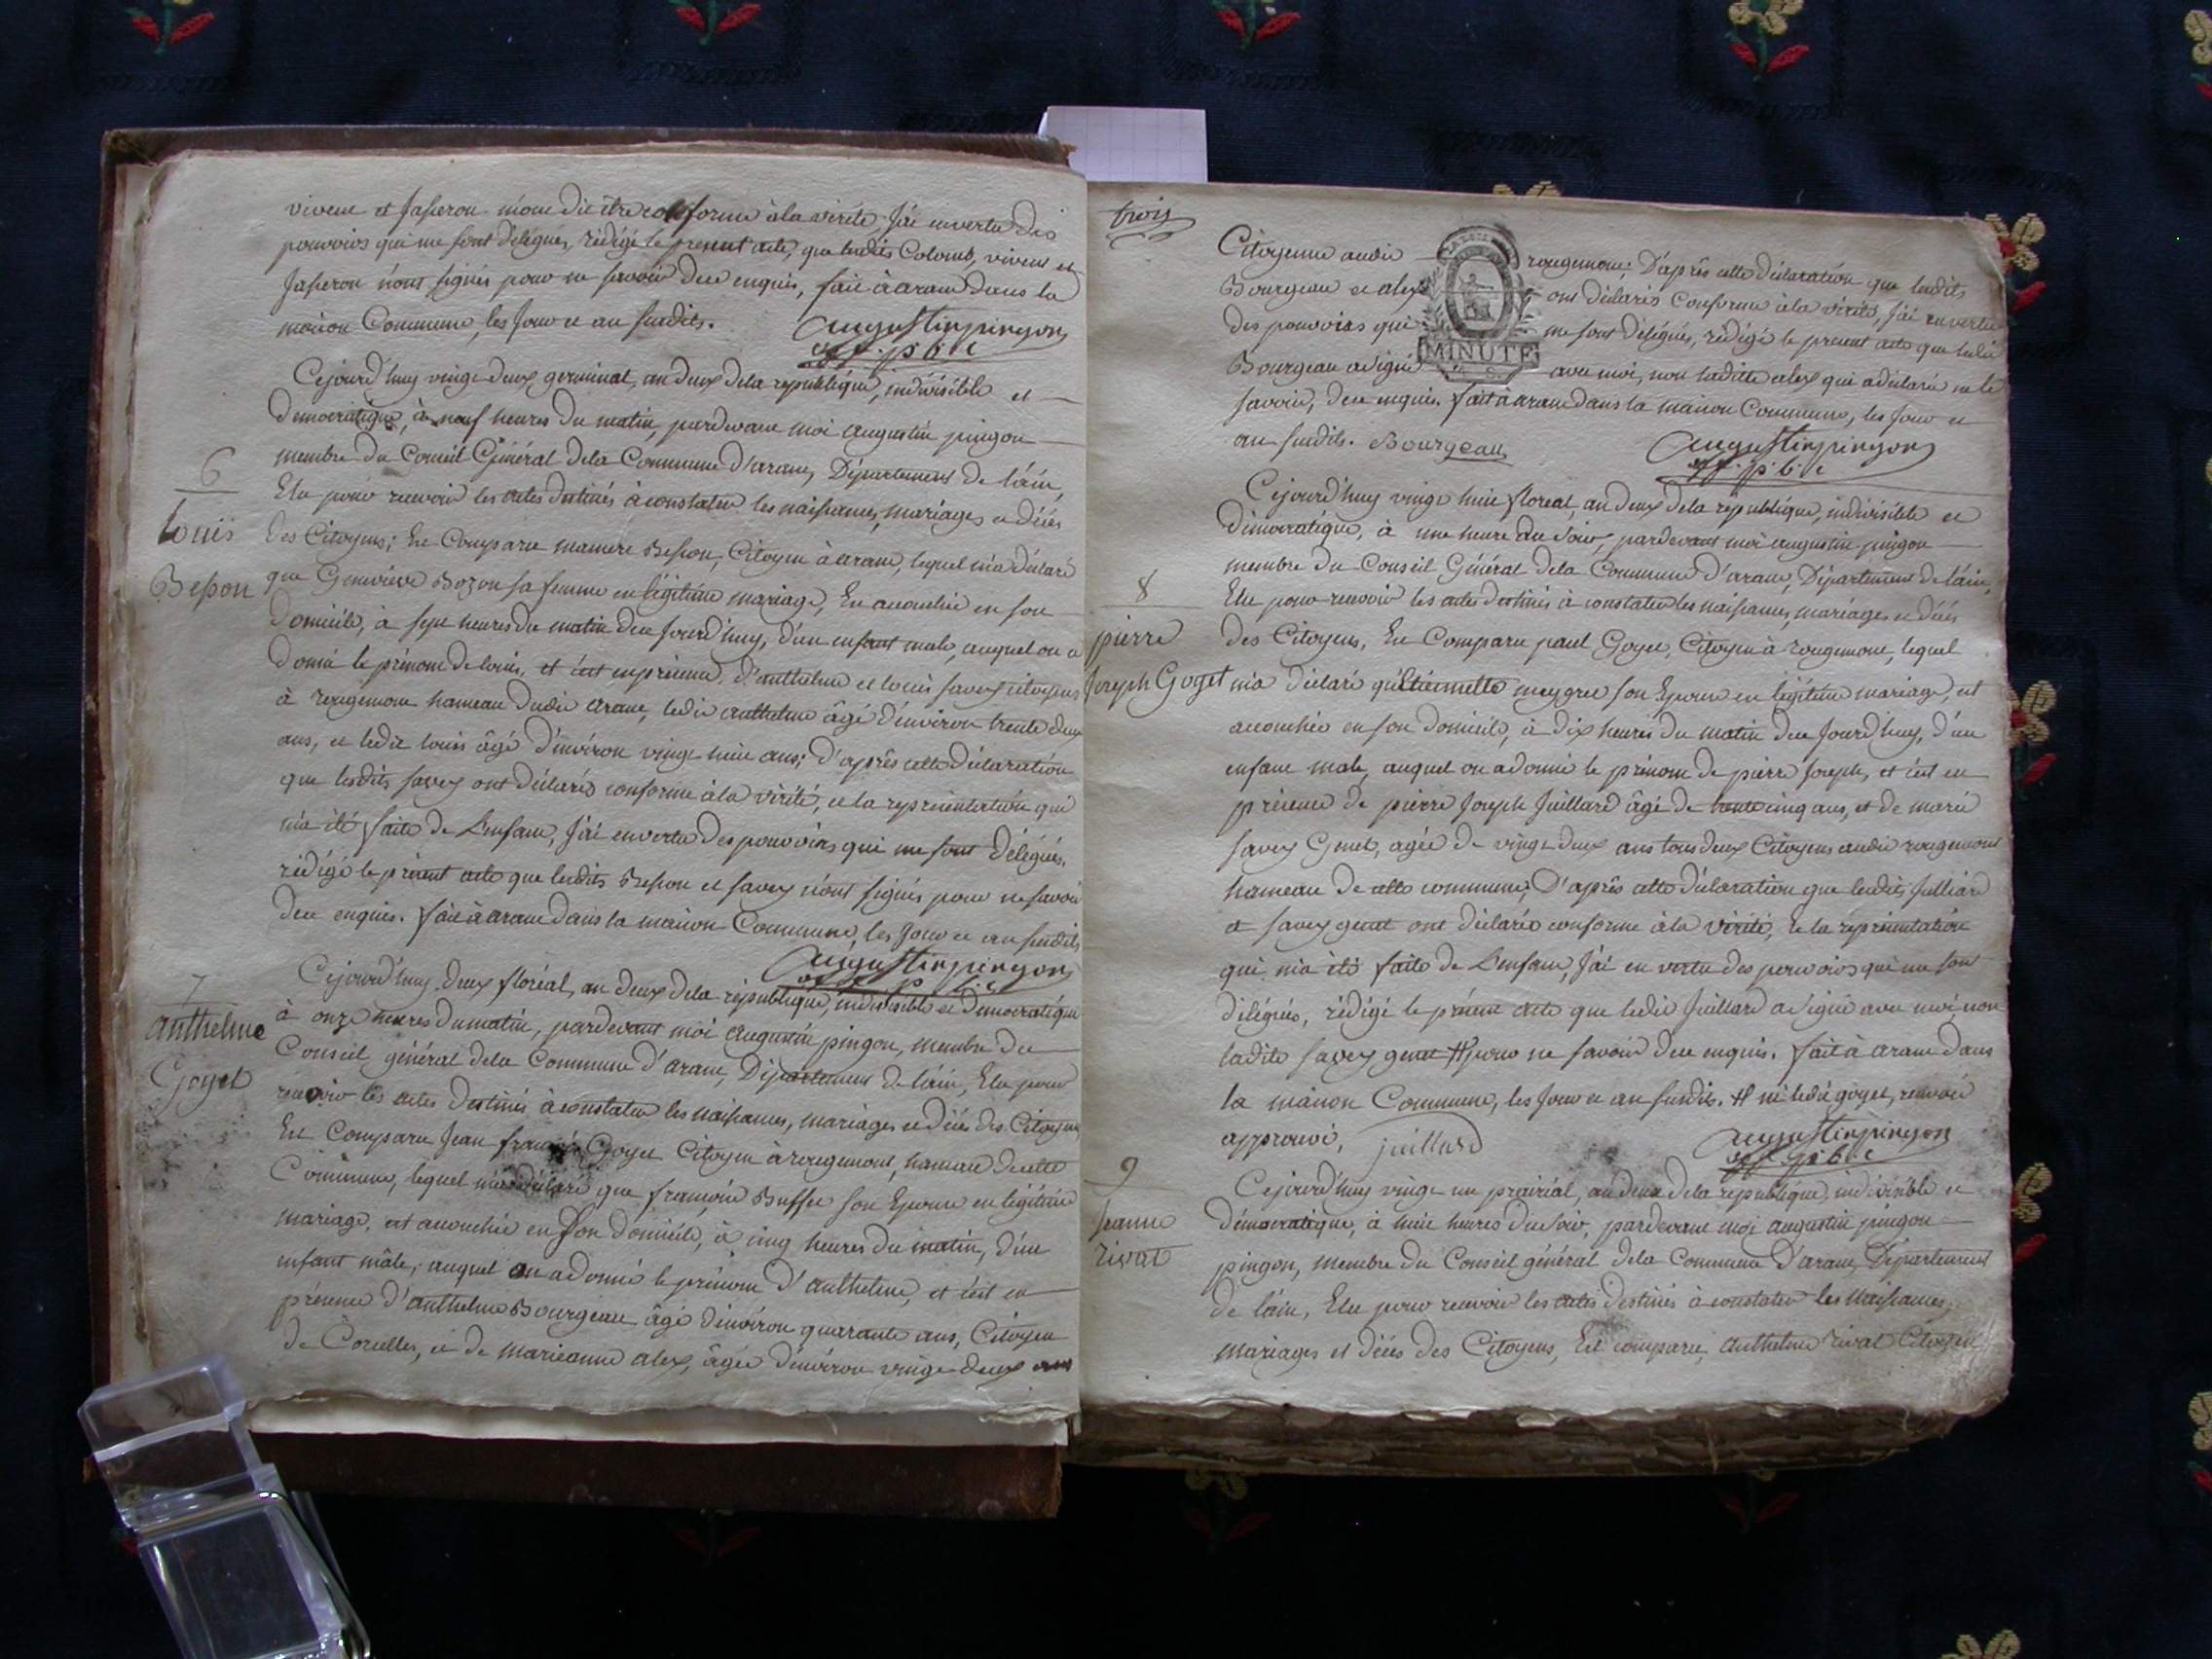 vivent et Jaseron m'ont dit être conforme à la vérité, J'ai en vertu des
pouvoirs qui me sont délégués, rédigé le present acte, que lesdits Colomb, vivent et
Jaseron n'ont signés pour ne savoir dece enquis, fait à arane dans la
maison Commune, les Jour et an susdits. augustin pingon
off. pblic
Cejourd'huy vingt deux germinal, an deux dela republique, indivisible et
democratique, à neuf heures du matin, pardevant moi augustin pingon
membre du Conseil Général dela Commune d'arane, Département de l'ain,
Elu pour recevoir les actes destinés à constater les naissances, mariages et décés
6
Louis
Besson
des Citoyens; Est Comparu Besson, Citoyen à arane, lequel m'a déclaré
que Geneviève Bozon sa femme en légitime mariage, Est accouchée en son
domicile, à sept heures du matin de ce Jourd'huy, d'un enfant male, auquel on a
donné le prénom de louis, et c'est en présence d'anthelme et louis savey citoyens
à rougemont hameau dudit arane, ledit anthelme âgé d'environ trente deux
ans, et ledit louis âgé d'environ vingt huit ans; d'après cette déclaration
que lesdits savey ont déclarés conforme à la vérité, et la représentation qui
m'a été faite de L'enfant, J'ai en vertu des pouvoirs qui me sont délégués,
rédigé le présent acte que lesdits Besson et savey n'ont signés pour ne savoir
dece enquis. fait à arane dans la maison Commune, les Jour et an susdits
augustin pingon
off. pblic
7
anthelme
Goyet
Cejourd'huy deux floréal, an deux dela république, indivisible et democratique
à onze heures du matin, pardevant moi augustin pingon, membre du
Conseil général dela Commune d'arane, Département de l'ain, Elu pour
recevoir les actes destinés à constater les naissances, mariages et décés des Citoyens
Est Comparu Jean françois Goyet Citoyen à rougemont, hameau de cette
Commune, lequel m'a déclaré que françoise Buffet son Epouse en légitime
mariage, est accouchée en son domicile, à cinq heures du matin, d'un
enfant mâle, auquel on a donné le prénom d'anthelme, et c'est en
présence d'anthelme Bourgeau âgé d'environ quarante ans, Citoyen
de Corcelles, et de marieanne alex, âgée d'environ vingt deux ans
trois
Citoyenne audit rougemont; D'après cette déclaration que lesdits
Bourgeau et alex ont déclarés Conforme à la vérité, j'ai en vertu
des pouvoirs qui me sont délégués, rédigé le present acte que ledit
MINUTE
Bourgeau a signé avec moi, non ladite alex qui a déclaré ne le
savoir, dece enquis. fait à arane dans la maison Commune, les Jour et
an susdits. Bourgeau augustin pingon
off. pblic
Cejourd'huy vingt huit floréal, an deux dela république, indivisible et
démocratique, à une heure du soir, pardevant moi augustin pingon
membre du Conseil Général dela Commune d'arane, Département de l'ain,
Elu pour recevoir les actes destinés à constater les naissances, mariages et décés
8
pierre
Joseph Goyet
des Citoyens, Est Comparu paul Goyet, Citoyen à rougemont, lequel
m'a déclaré qu'Etiennette meygret son Epouse en légitime mariage, est
accouchée en son domicile, à dix heures du matin de ce Jourd'huy, d'un
enfant male, auquel on a donné le prénom de pierre Joseph, et c'est en
présence de pierre Joseph Juillard âgé de trente cinq ans, et de marie
savey Genet, agée de vingt deux ans tous deux Citoyens audit rougemont
hameau de cette commune; D'après cette déclaration que lesdits Juillard
et savey genet ont déclarés conforme à la vérité, Et la représentation
qui m'a été faite de L'enfant, J'ai en vertu des pouvoirs qui me sont
délégués, rédigé le présent acte que ledit Juillard a signé avec moi non
ladite savey genet # pour ne savoir dece enquis. fait à arane dans
la maison Commune, les Jour et an susdits. # ni ledit goyet, renvoi
approuvé, juillard augustin pingon
off. pblic
9
Jeanne
rivat
Cejourd'huy vingt un prairial, an deux dela république, indivisible et
démocratique, à huit heures du soir, pardevant moi augustin pingon
pingon, membre du Conseil général dela Commune d'arane, Département
de l'ain, Elu pour recevoir les actes destinés à constater les naissances,
mariages et décés des Citoyens, Est comparu, anthelme rivat Citoyen